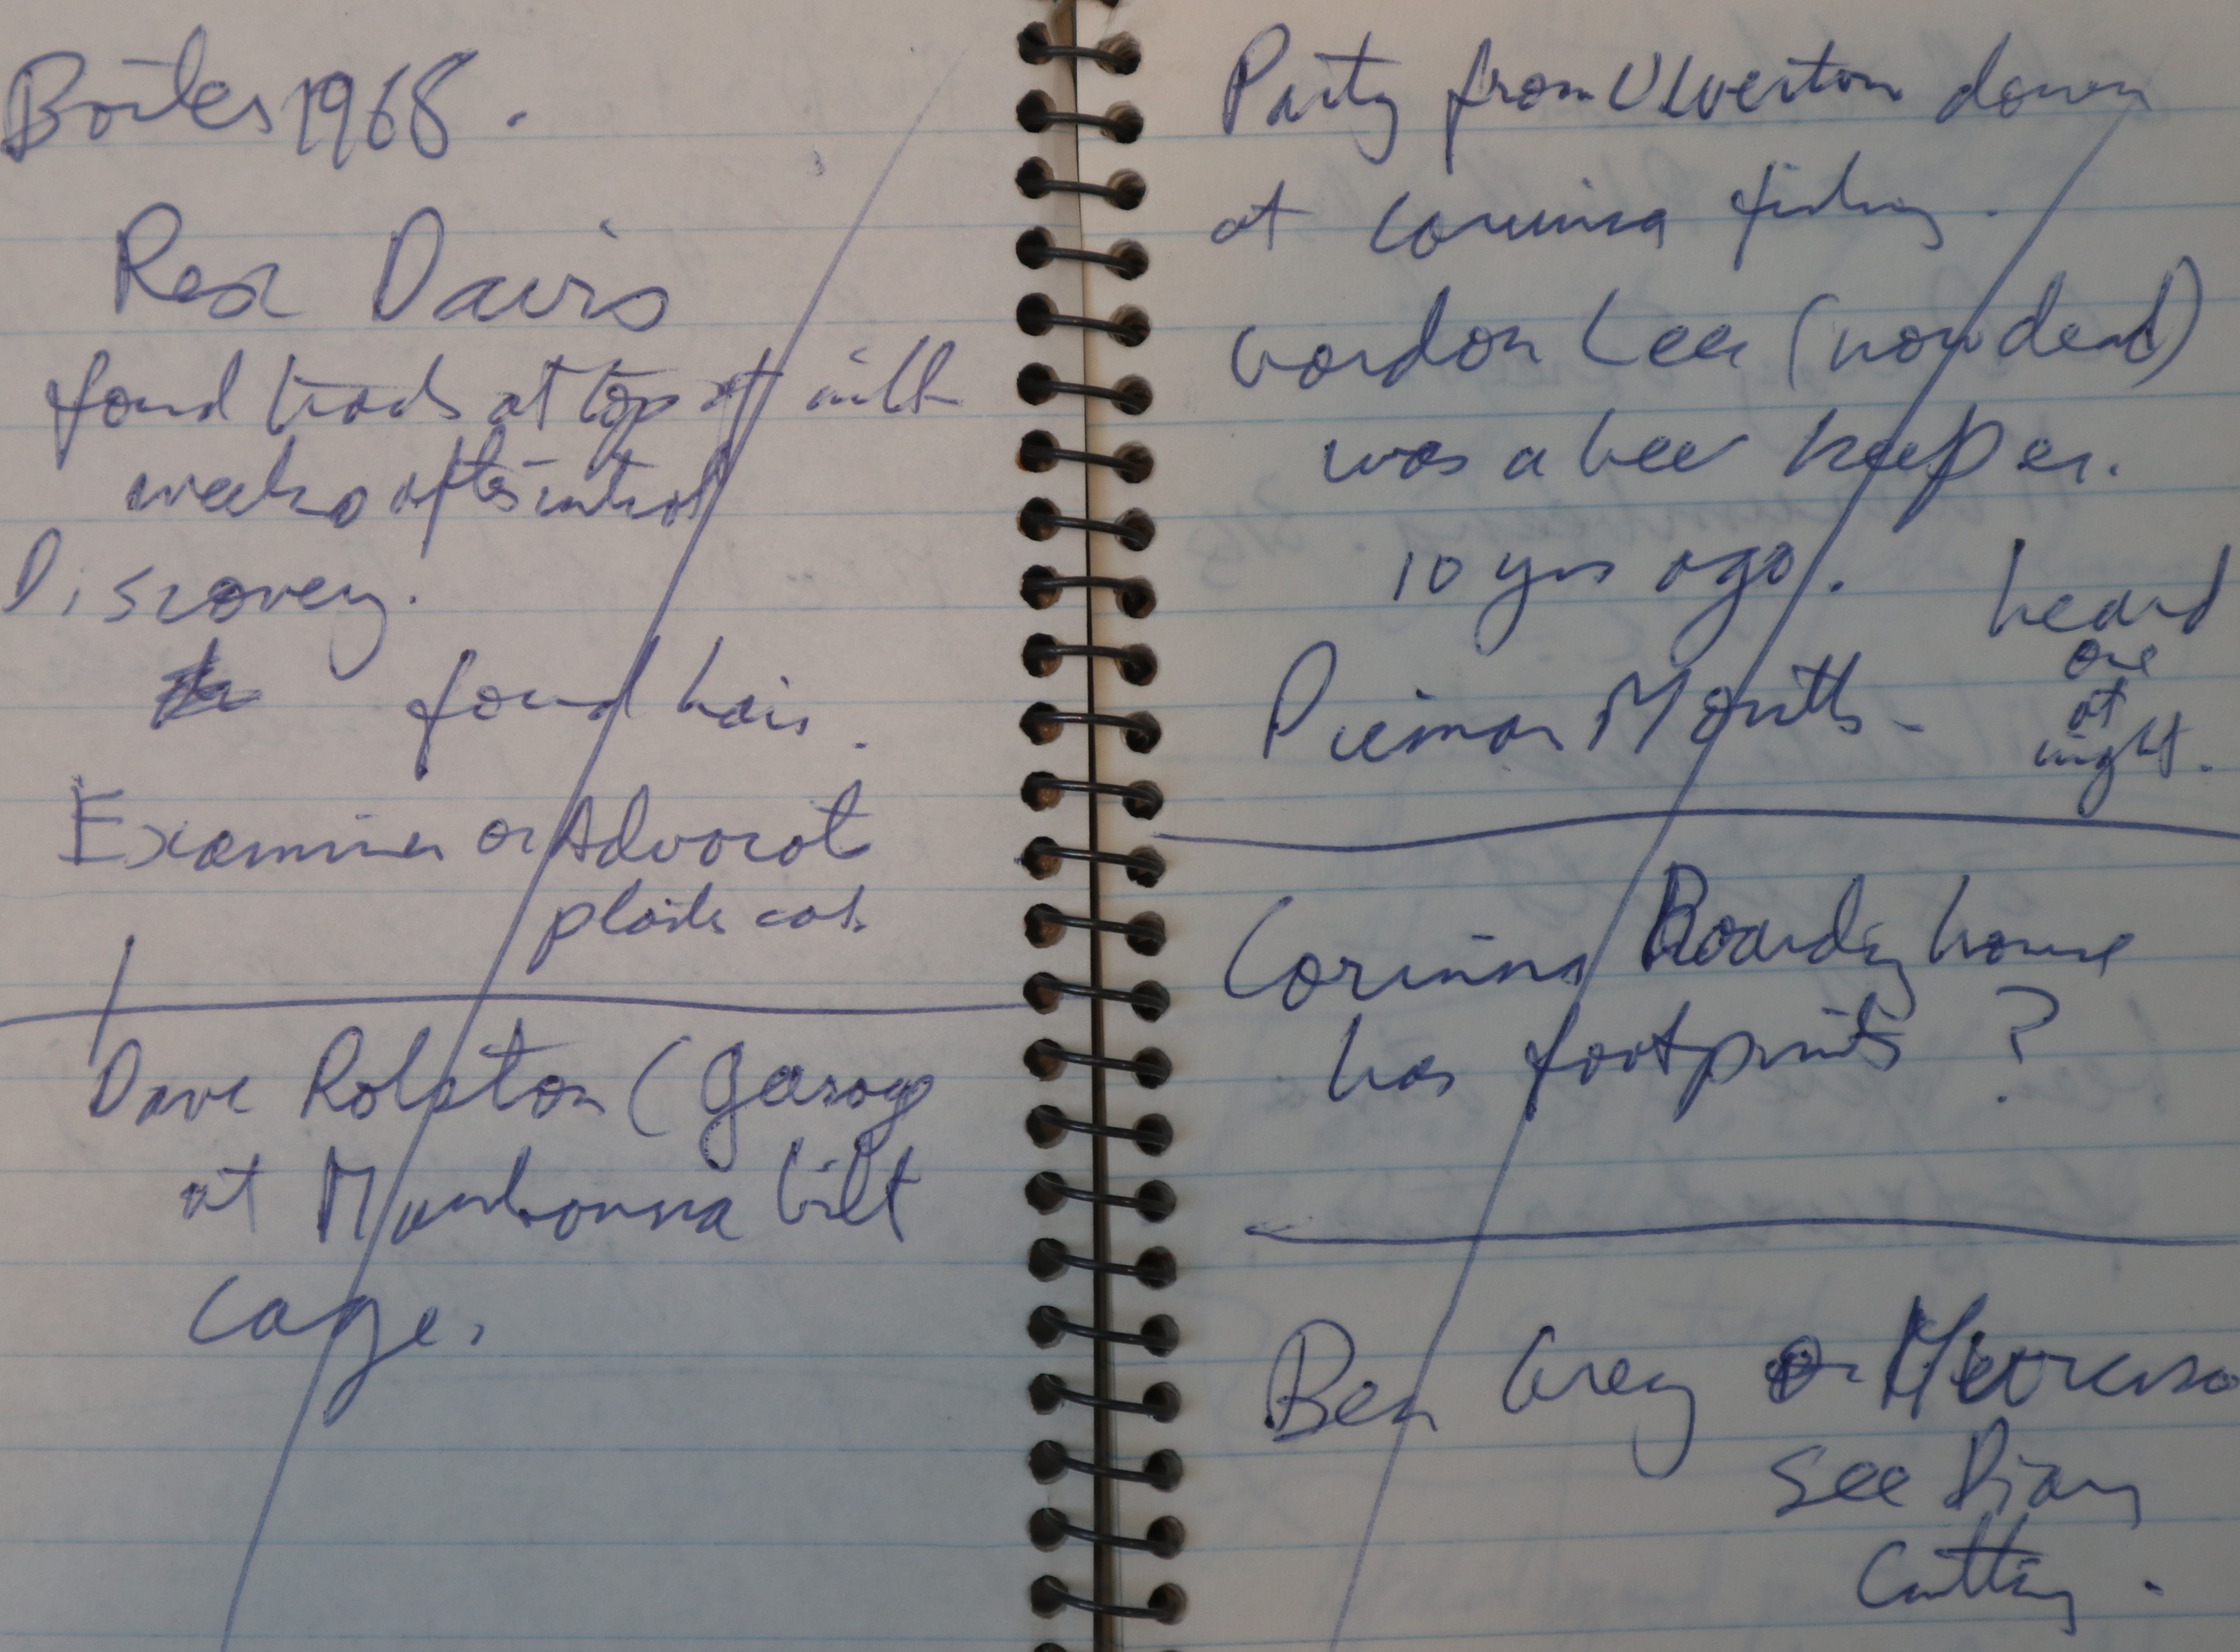 1968.
Rex Davis
found tracks at top of
weeks after initial
Discovery.
found hair.
Examiner or Advocate
plaster cast.
Dave Rolston (garage
at Marrawah built
cage.
Party from Ulverstone down
at Corinna fishing.
Gordon Lee (now dead)
was a bee keeper.
10 yrs ago.
heard
one
at
night.
Pieman Mouth -
Corinna Boarding house
has footprints ?
Ben Grey or Mercury
See Diary
Cutting.